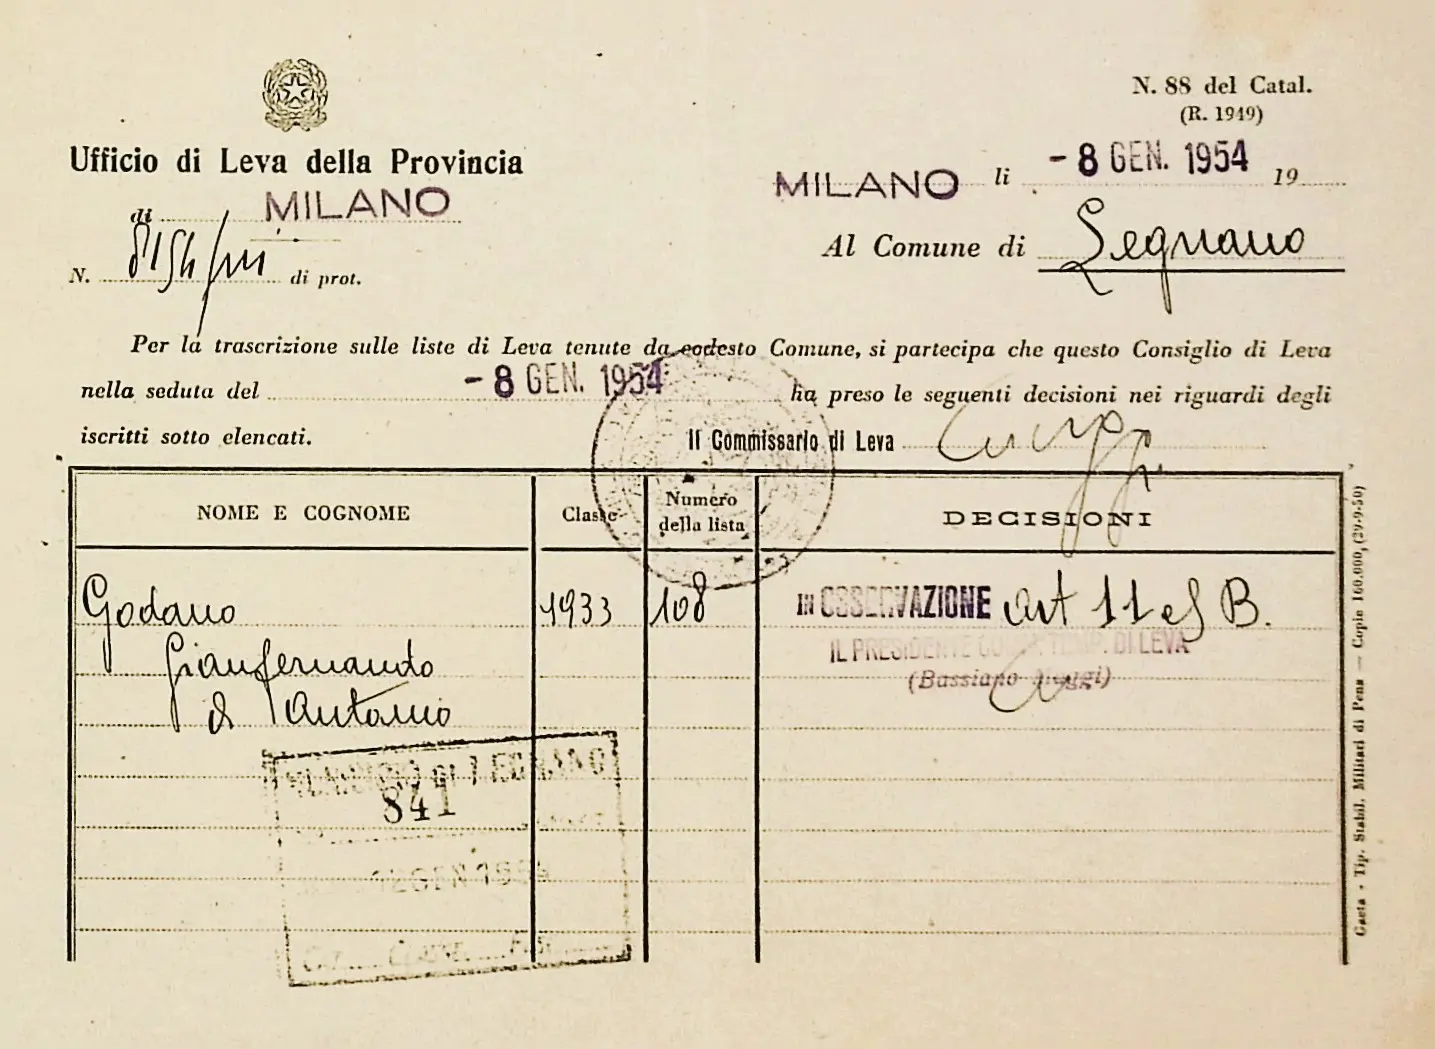 N. 88 del Catal.
(R. 1949)
Ufficio di Leva della Provincia
di MILANO
N. di prot.
MILANO li - 8 GEN. 1954 19
Al Comune di Legnano
Per la trascrizione sulle liste di Leva tenute da codesto Comune, si partecipa che questo Consiglio di Leva
nella seduta del - 8 GEN. 1954 ha preso le seguenti decisioni nei riguardi degli
iscritti sotto elencati.
Il Commissario di Leva
NOME E COGNOME Classe Numero della lista DECISIONI
Godano 1933 108 IN OSSERVAZIONE art 11 B.
Gianfernando
di Antonio
IL PRESIDENTE DI LEVA
(Bassiano
LEGNANO
841
GEN
Gaeta - Tip. Stabil. Militari di Pena — Copie 100.000, (29-9-50)